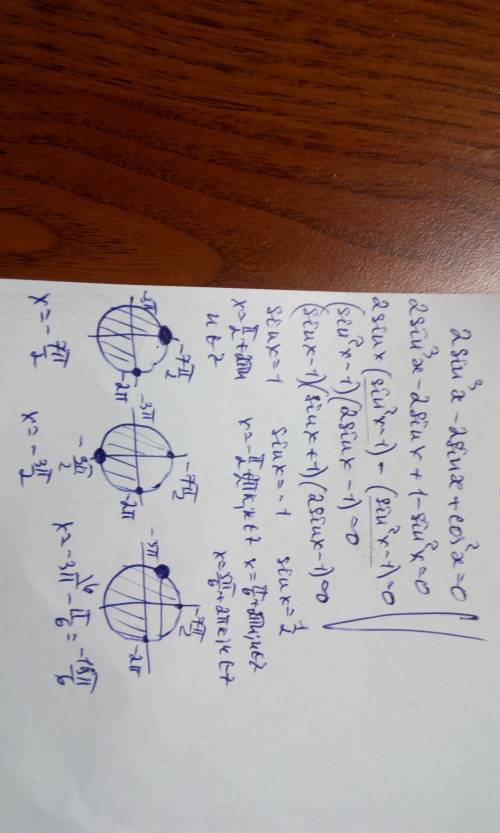 2sin³x - 2sinx + cos²x = 0
2sin³x - 2sinx + 1 - sin²x = 0
2sinx (sin²x - 1) - (sin²x - 1) = 0
(sin²x - 1)(2sinx - 1) = 0
(sinx - 1)(sinx + 1)(2sinx - 1) = 0
sinx = 1 sinx = -1 sinx = 1/2
x = π/2 + 2πn x = -π/2 + 2πk, k∈Z x = π/6 + 2πm, m∈Z
n∈Z x = 5π/6 + 2πe, e∈Z
-7π/2 -7π/2 -7π/2
-3π -2π -3π -2π -3π -2π
-3π/2
x = -7π/2 x = -3π/2 x = -3π - π/6 =